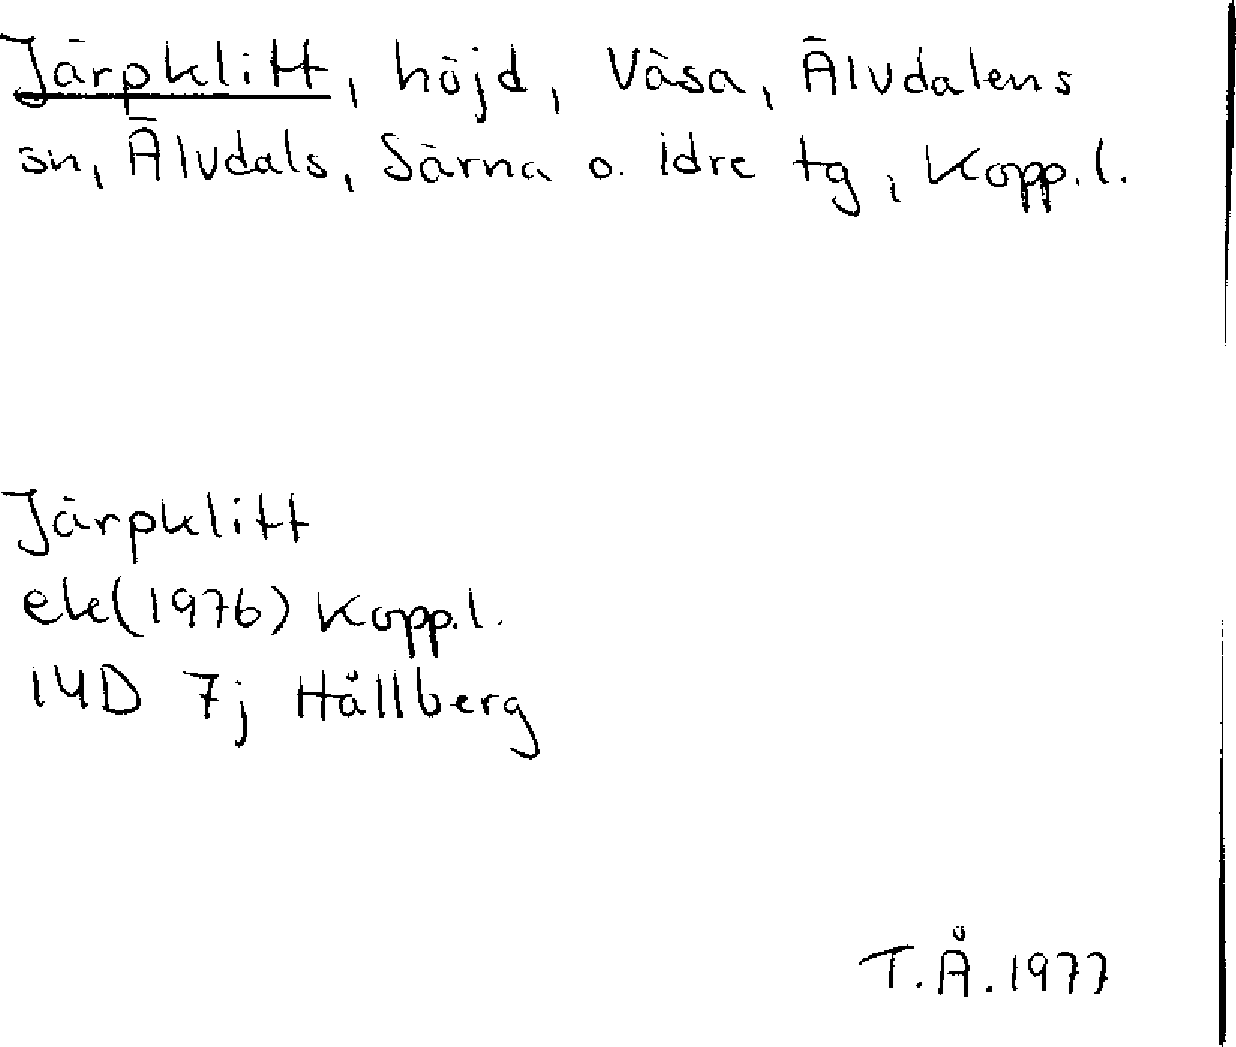 Järpklitt, höjd, Väsa, Älvdalens
sn, Älvdals, Särna o. Idre tg, Kopp.l.
Järpklitt
ek(1976) Kopp.l.
14D 7j Hållberg
T.Å.1977